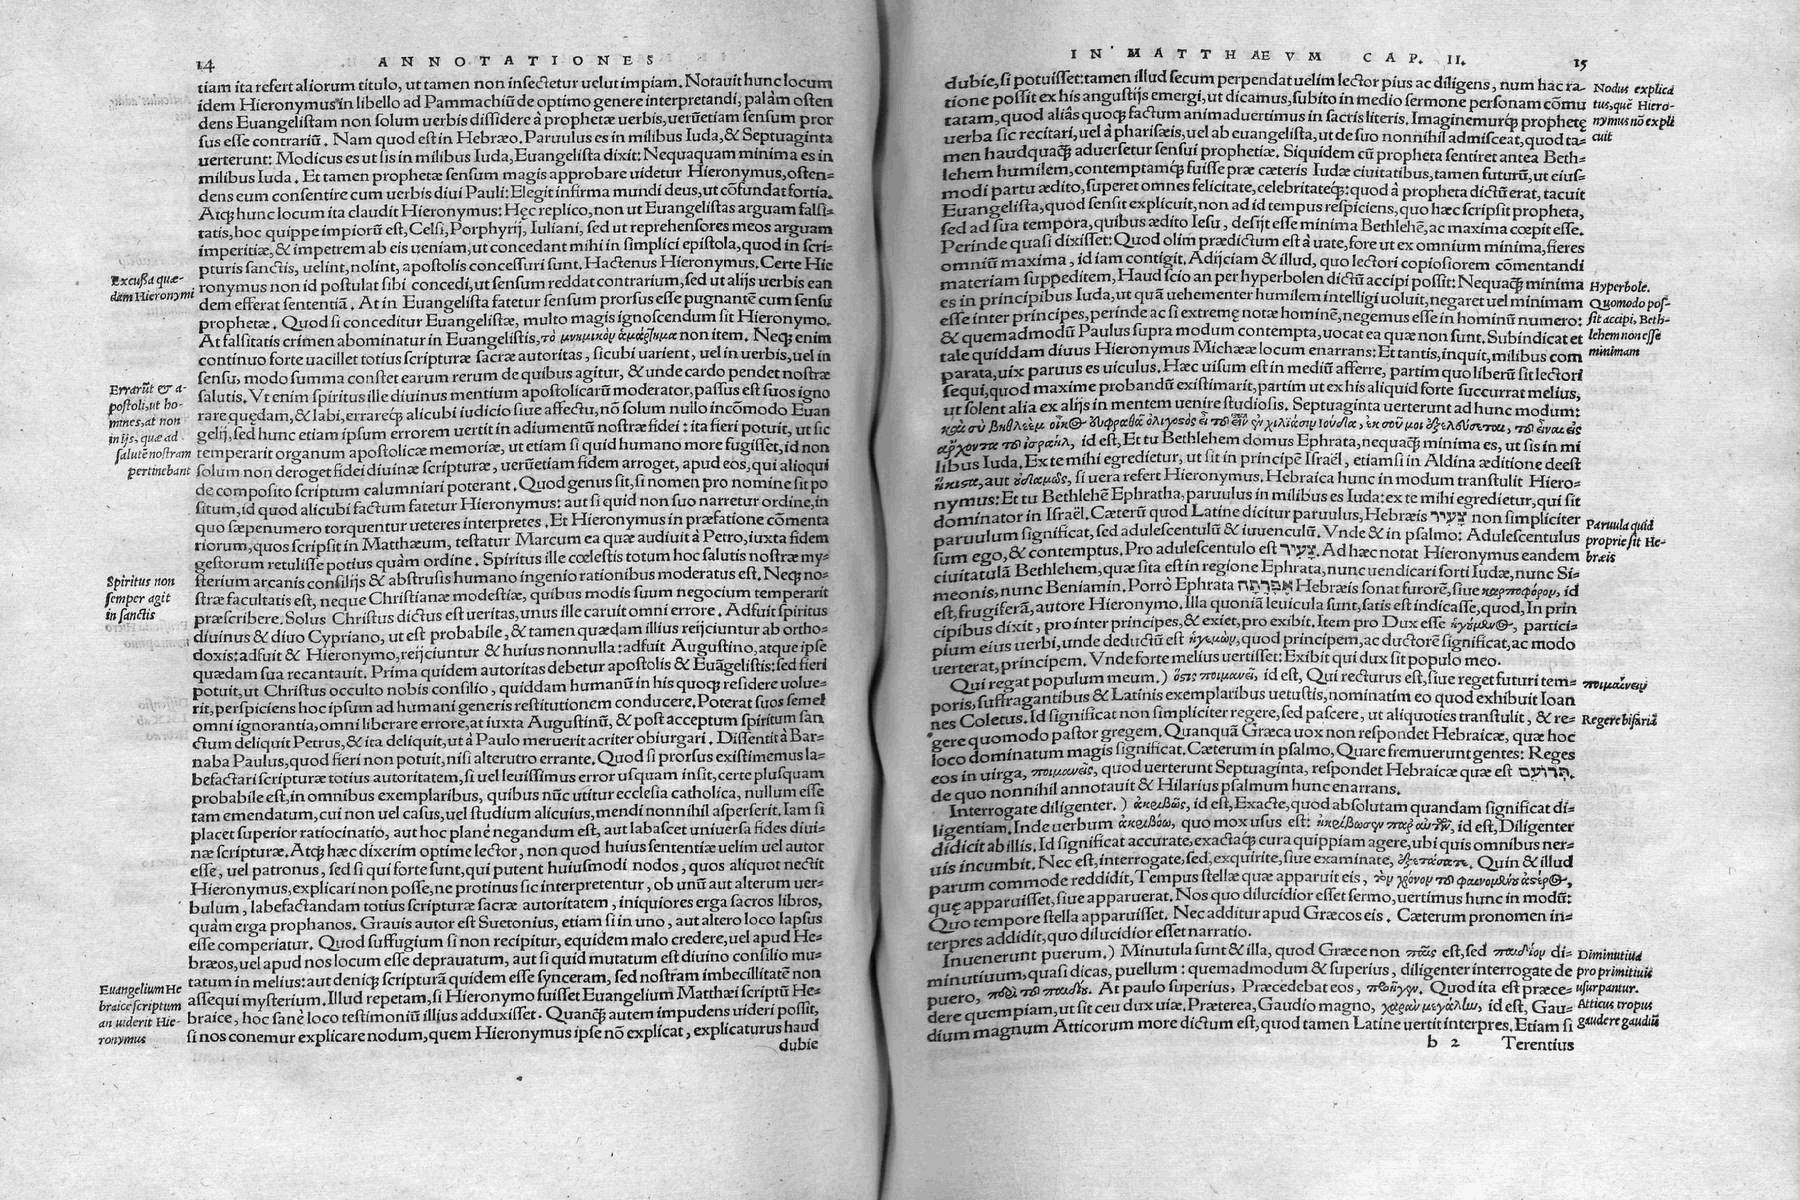 14 ANNOTATIONES
tiam ita refert aliorum titulo, ut tamen non insectetur uelut impiam. Notauit hunc locum
idem Hieronymus in libello ad Pammachiũ de optimo genere interpretandi, palàm osten
dens Euangelistam non solum uerbis dissidere à prophetæ uerbis, uerũetiam sensum pror
sus esse contrariũ. Nam quod est in Hebræo. Paruulus es in milibus Iuda, & Septuaginta
uerterunt: Modicus es ut sis in milibus Iuda, Euangelista dixit: Nequaquam minima es in
milibus Iuda. Et tamen prophetæ sensum magis approbare uidetur Hieronymus, osten=
dens eum consentire cum uerbis diui Pauli: Elegit infirma mundi deus, ut cõfundat fortia.
Atqꝫ hunc locum ita claudit Hieronymus: Hęc replico, non ut Euangelistas arguam falsi=
tatis, hoc quippe impiorũ est, Celsi, Porphyrij, Iuliani, sed ut reprehensores meos arguam
imperitiæ, & impetrem ab eis ueniam, ut concedant mihi in simplici epistola, quod in scri=
pturis sanctis, uelint, nolint, apostolis concessuri sunt. Hactenus Hieronymus. Certe Hie
ronymus non id postulat sibi concedi, ut sensum reddat contrarium, sed ut alijs uerbis ean
dem efferat sententiã. At in Euangelista fatetur sensum prorsus esse pugnantẽ cum sensu
prophetæ. Quod si conceditur Euangelistæ, multo magis ignoscendum sit Hieronymo.
At falsitatis crimen abominatur in Euangelistis, τὸ μνημικὸν ἁμάρτημα non item. Neqꝫ enim
continuo forte uacillet totius scripturæ sacræ autoritas, sicubi uarient, uel in uerbis, uel in
sensu, modo summa constet earum rerum de quibus agitur, & unde cardo pendet nostræ
salutis. Vt enim spiritus ille diuinus mentium apostolicarũ moderator, passus est suos igno
rare quędam, & labi, errareqꝫ alicubi iudicio siue affectu, nõ solum nullo incõmodo Euan
gelij, sed hunc etiam ipsum errorem uertit in adiumentũ nostræ fidei: ita fieri potuit, ut sic
temperarit organum apostolicæ memoriæ, ut etiam si quid humano more fugisset, id non
solum non deroget fidei diuinæ scripturæ, uerũetiam fidem arroget, apud eos, qui alioqui
de composito scriptum calumniari poterant. Quod genus sit, si nomen pro nomine sit po
situm, id quod alicubi factum fatetur Hieronymus: aut si quid non suo narretur ordine, in
quo sæpenumero torquentur ueteres interpretes. Et Hieronymus in præfatione cõmenta
riorum, quos scripsit in Matthæum, testatur Marcum ea quæ audiuit à Petro, iuxta fidem
gestorum retulisse potius quàm ordine. Spiritus ille cœlestis totum hoc salutis nostræ my=
sterium arcanis consilijs & abstrusis humano ingenio rationibus moderatus est. Neqꝫ no=
stræ facultatis est, neque Christianæ modestiæ, quibus modis suum negocium temperarit
præscribere. Solus Christus dictus est ueritas, unus ille caruit omni errore. Adfuit spiritus
diuinus & diuo Cypriano, ut est probabile, & tamen quædam illius reijciuntur ab ortho=
doxis: adfuit & Hieronymo, reijciuntur & huius nonnulla: adfuit Augustino, atque ipse
quædam sua recantauit. Prima quidem autoritas debetur apostolis & Euãgelistis: sed fieri
potuit, ut Christus occulto nobis consilio, quiddam humanũ in his quoqꝫ residere uolue=
rit, perspiciens hoc ipsum ad humani generis restitutionem conducere. Poterat suos semel
omni ignorantia, omni liberare errore, at iuxta Augustinũ, & post acceptum spiritum san
ctum deliquit Petrus, & ita deliquit, ut à Paulo meruerit acriter obiurgari. Dissentit à Bar=
naba Paulus, quod fieri non potuit, nisi alterutro errante. Quod si prorsus existimemus la=
befactari scripturæ totius autoritatem, si uel leuissimus error usquam insit, certe plusquam
probabile est, in omnibus exemplaribus, quibus nũc utitur ecclesia catholica, nullum esse
tam emendatum, cui non uel casus, uel studium alicuius, mendi nonnihil asperserit. Iam si
placet superior ratiocinatio, aut hoc planè negandum est, aut labascet uniuersa fides diui=
næ scripturæ. Atqꝫ hæc dixerim optime lector, non quod huius sententiæ uelim uel autor
esse, uel patronus, sed si qui forte sunt, qui putent huiusmodi nodos, quos aliquot nectit
Hieronymus, explicari non posse, ne protinus sic interpretentur, ob unũ aut alterum uer=
bulum, labefactandam totius scripturæ sacræ autoritatem, iniquiores erga sacros libros,
quàm erga prophanos. Grauis autor est Suetonius, etiam si in uno, aut altero loco lapsus
esse comperiatur. Quod suffugium si non recipitur, equidem malo credere, uel apud He=
bræos, uel apud nos locum esse deprauatum, aut si quid mutatum est diuino consilio mu=
tatum in melius: aut deniqꝫ scripturã quidem esse synceram, sed nostram imbecillitatẽ non
assequi mysterium. Illud repetam, si Hieronymo fuisset Euangelium Matthæi scriptũ He=
braice, hoc sanè loco testimoniũ illius adduxisset. Quanqꝫ autem impudens uideri possit,
si nos conemur explicare nodum, quem Hieronymus ipse nõ explicat, explicaturus haud
dubie
Excussa quæ=
dam Hieronymi
Errarũt & a-
postoli, ut ho-
mines, at non
in ijs, quæ ad
salutẽ nostram
pertinebant
Spiritus non
semper agit
in sanctis
Euangelium He
braice scriptum
an uiderit Hie-
ronymus
IN MATTHAEVM CAP. II. 15
dubie, si potuisset: tamen illud secum perpendat uelim lector pius ac diligens, num hac ra-
tione possit ex his angustijs emergi, ut dicamus, subito in medio sermone personam cõmu
tatam, quod aliâs quoqꝫ factum animaduertimus in sacris literis. Imaginemurqꝫ prophetę
uerba sic recitari, uel à pharisæis, uel ab euangelista, ut de suo nonnihil admisceat, quod ta=
men haudquaqꝫ aduersetur sensui prophetiæ. Siquidem cũ propheta sentiret antea Beth=
lehem humilem, contemptamqꝫ fuisse præ cæteris Iudæ ciuitatibus, tamen futurũ, ut eius=
modi partu ædito, superet omnes felicitate, celebritateqꝫ: quod à propheta dictũ erat, tacuit
Euangelista, quod sensit explicuit, non ad id tempus respiciens, quo hæc scripsit propheta,
sed ad sua tempora, quibus ædito Iesu, desijt esse minima Bethlehẽ, ac maxima cœpit esse.
Perinde quasi dixisset: Quod olim prædictum est à uate, fore ut ex omnium minima, fieres
omniũ maxima, id iam contigit. Adijciam & illud, quo lectori copiosiorem cõmentandi
materiam suppeditem, Haud scio an per hyperbolen dictũ accipi possit: Nequaqꝫ minima
es in principibus Iuda, ut quã uehementer humilem intelligi uoluit, negaret uel minimam
esse inter principes, perinde ac si extremę notæ hominẽ, negemus esse in hominũ numero:
& quemadmodũ Paulus supra modum contempta, uocat ea quæ non sunt. Subindicat et
tale quiddam diuus Hieronymus Michææ locum enarrans: Et tantis, inquit, milibus com
parata, uix paruus es uiculus. Hæc uisum est in mediũ afferre, partim quo liberũ sit lectori
sequi, quod maxime probandũ existimarit, partim ut ex his aliquid forte succurrat melius,
ut solent alia ex alijs in mentem uenire studiosis. Septuaginta uerterunt ad hunc modum:
καὶ σὺ βηθλεὲμ οἶκος ἐυφραθὰ ὀλιγοσὸς εἶ τοῦ εἶναι ἐν χιλιάσιν ἰούδα, ἐκ σοῦ μοι ἐξελεύσεται, τοῦ εἶναι εἰς
ἄρχοντα τοῦ ἰσραὴλ, id est, Et tu Bethlehem domus Ephrata, nequaqꝫ minima es, ut sis in mi
libus Iuda. Ex te mihi egredietur, ut sit in principẽ Israël, etiamsi in Aldina æditione deest
ἥκιστα, aut οὐδαμῶς, si uera refert Hieronymus. Hebraica hunc in modum transtulit Hiero=
nymus: Et tu Bethlehẽ Ephratha, paruulus in milibus es Iuda: ex te mihi egredietur, qui sit
dominator in Israël. Cæterũ quod Latine dicitur paruulus, Hebræis צָעִיר non simpliciter
paruulum significat, sed adulescentulũ & iuuenculũ. Vnde & in psalmo: Adulescentulus
sum ego, & contemptus. Pro adulescentulo est צָעִיר. Ad hæc notat Hieronymus eandem
ciuitatulã Bethlehem, quæ sita est in regione Ephrata, nunc uendicari sorti Iudæ, nunc Si=
meonis, nunc Beniamin. Porrò Ephrata אֶפְרָתָה Hebræis sonat furorẽ, siue καρποφόρον, id
est, frugiferã, autore Hieronymo. Illa quoniã leuicula sunt, satis est indicasse, quod, In prin
cipibus dixit, pro inter principes, & exiet, pro exibit. Item pro Dux esse ἡγούμενος, partici=
pium eius uerbi, unde deductũ est ἡγεμὼν, quod principem, ac ductorẽ significat, ac modo
uerterat, principem. Vnde forte melius uertisset: Exibit qui dux sit populo meo.
Qui regat populum meum.) ὅστις ποιμανεῖ, id est, Qui recturus est, siue reget futuri tem=
poris, suffragantibus & Latinis exemplaribus uetustis, nominatim eo quod exhibuit Ioan
nes Coletus. Id significat non simpliciter regere, sed pascere, ut aliquoties transtulit, & re=
gere quomodo pastor gregem. Quanquã Græca uox non respondet Hebraicæ, quæ hoc
loco dominatum magis significat. Cæterum in psalmo, Quare fremuerunt gentes: Reges
eos in uirga, ποιμανεῖς, quod uerterunt Septuaginta, respondet Hebraicæ quæ est תְּרוֹעֵם.
de quo nonnihil annotauit & Hilarius psalmum hunc enarrans.
Interrogate diligenter.) ἀκριβῶς, id est, Exacte, quod absolutam quandam significat di=
ligentiam. Inde uerbum ἀκριβόω, quo mox usus est: ἠκρίβωσεν παρ᾽ αὐτῶν, id est, Diligenter
didicit ab illis. Id significat accurate, exactaqꝫ cura quippiam agere, ubi quis omnibus ner=
uis incumbit. Nec est, interrogate, sed, exquirite, siue examinate, ἐξετάσατε. Quin & illud
parum commode reddidit, Tempus stellæ quæ apparuit eis, τὸν χρόνον τοῦ φαινομένου ἀστέρος,
quę apparuisset, siue apparuerat. Nos quo dilucidior esset sermo, uertimus hunc in modũ:
Quo tempore stella apparuisset. Nec additur apud Græcos eis. Cæterum pronomen in=
terpres addidit, quo dilucidior esset narratio.
Inuenerunt puerum.) Minutula sunt & illa, quod Græce non παῖς est, sed παιδίον di=
minutiuum, quasi dicas, puellum: quemadmodum & superius, diligenter interrogate de
puero, περὶ τοῦ παιδίου. At paulo superius, Præcedebat eos, προῆγεν. Quod ita est præce=
dere quempiam, ut sit ceu dux uiæ. Præterea, Gaudio magno, χαρὰν μεγάλην, id est, Gau=
dium magnum Atticorum more dictum est, quod tamen Latine uertit interpres. Etiam si
b 2 Terentius
Nodus explica
tus, quẽ Hiero-
nymus nõ expli
cuit
Hyperbole.
Quomodo pos-
sit accipi, Beth-
lehem non esse
minimam
Paruula quid
proprie sit He-
bræis
ποιμαίνειν
Regere bifariã
Diminutiua
pro primitiuis
usurpantur.
Atticus tropus
gaudere gaudiũ